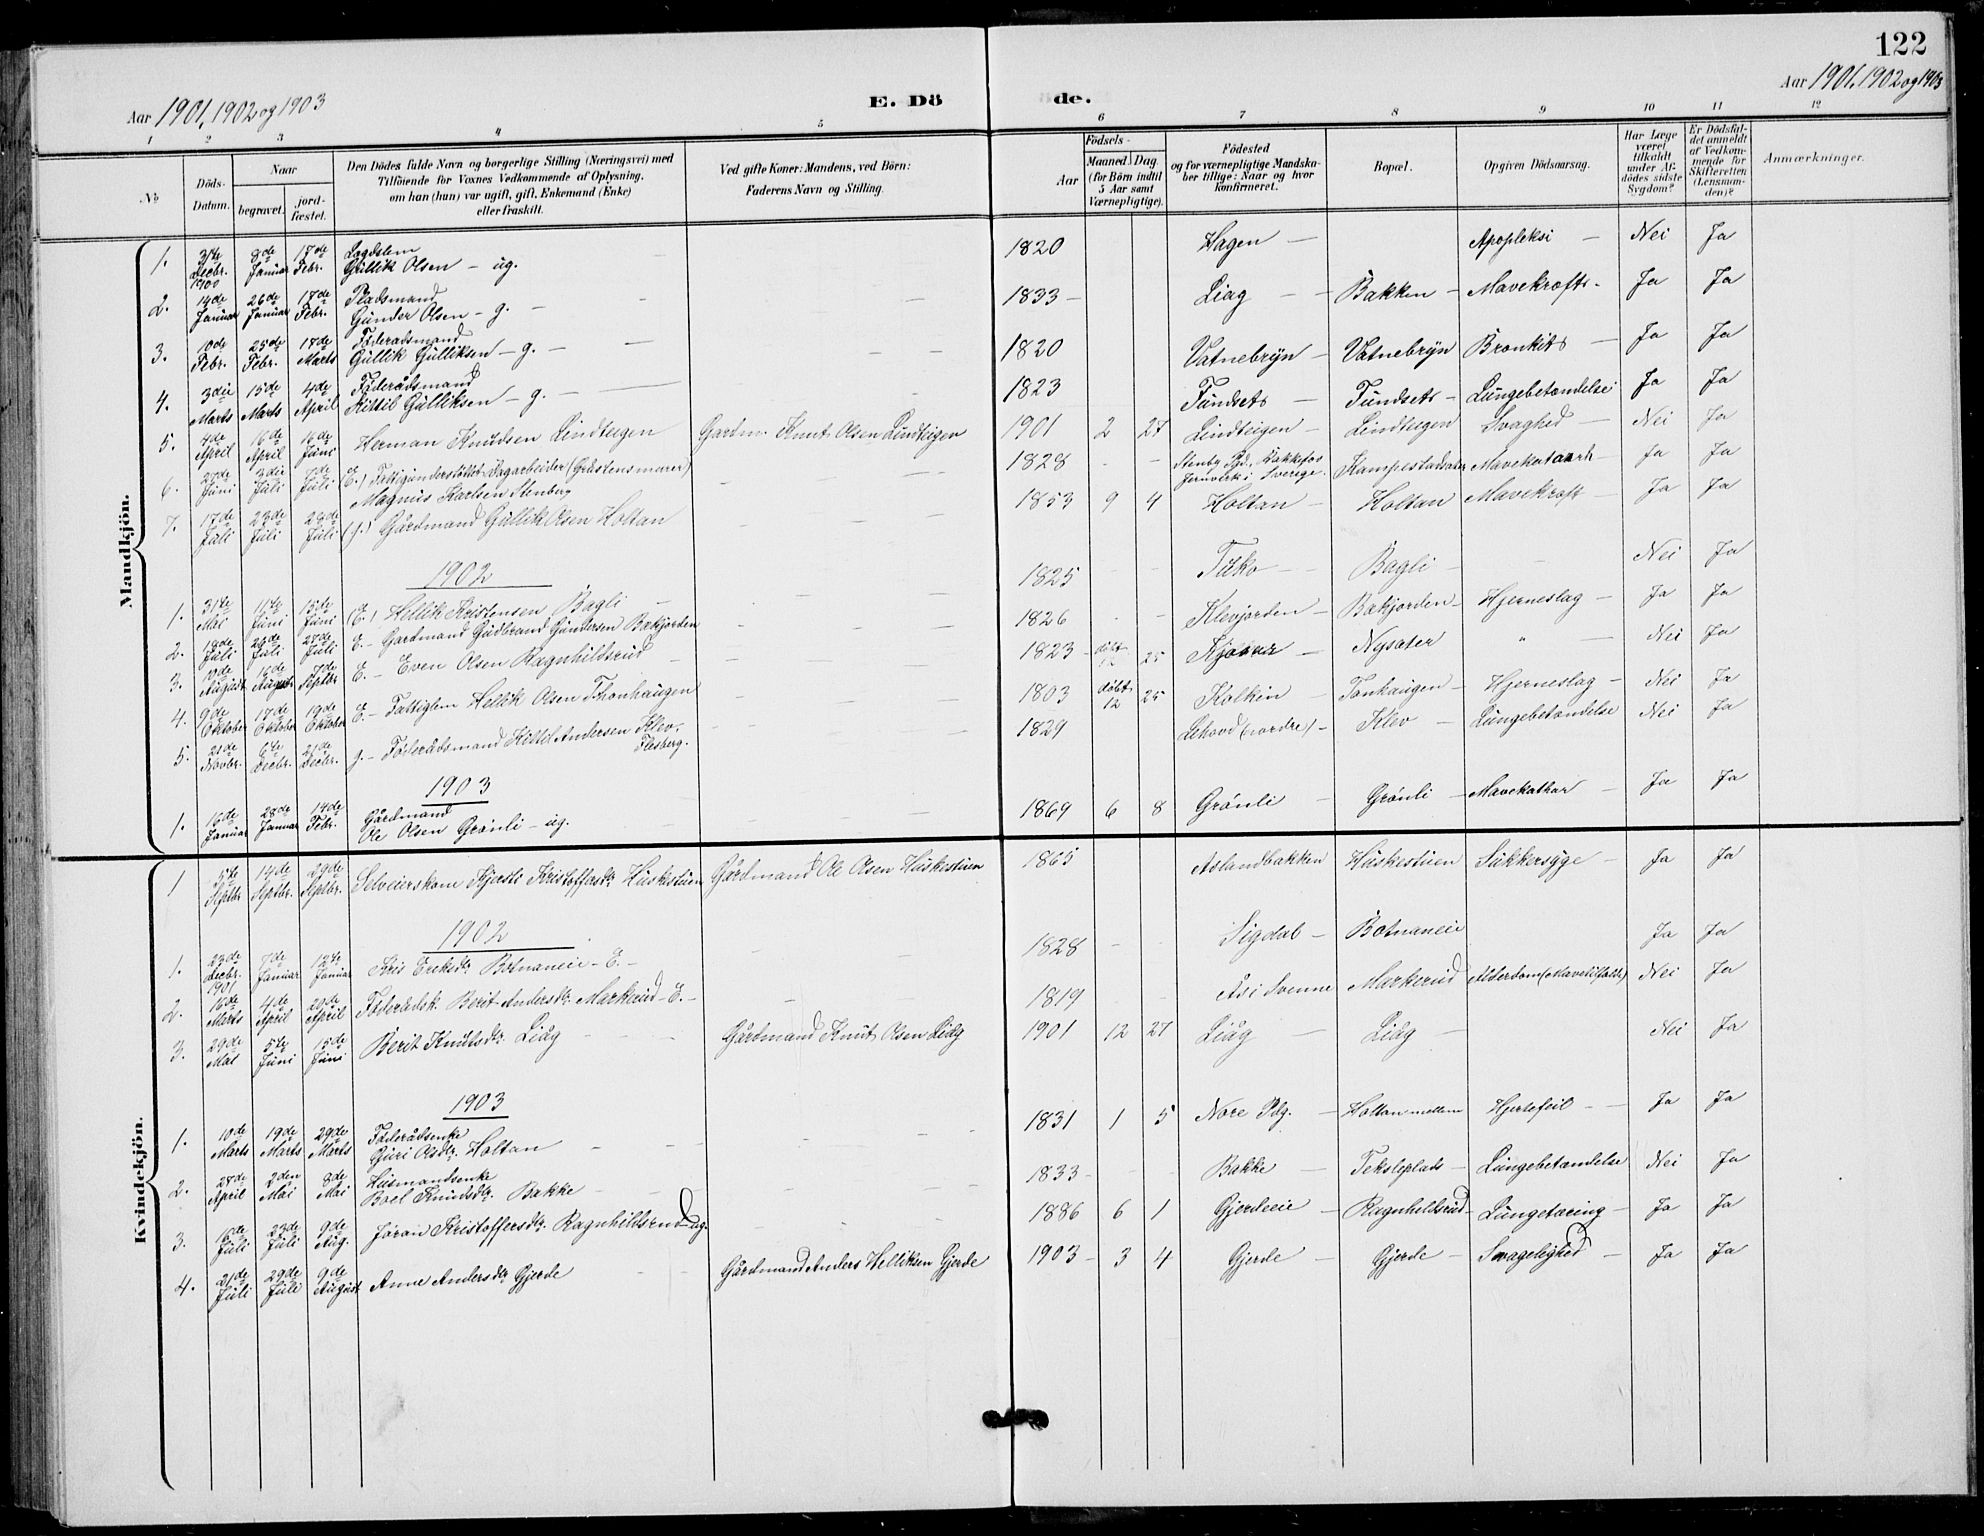 122
Aar 1901, 1902 og 1903
E. Dö
de.
Aar 1901, 1902 og 1903
1 2 3 4 5 6 7 8 9 10 11 12
No
Döds-Datum.
Naar
begravet.
jord-fæstet.
Den Dödes fulde Navn og borgerlige Stilling (Næringsvei) med
Tilföiende for Voxnes Vedkommende af Oplysning,
om han (hun) var ugift, gift, Enkemand (Enke)
eller fraskilt.
Ved gifte Koner: Mandens, ved Börn:
Faderens Navn og Stilling.
Födsels-
Aar
Maaned Dag
(for Börn indtil
5 Aar samt
Værnepligtige).
Födested
og for værnepligtige Mandskaber tillige: Naar og hvor
konfirmeret.
Bopæl.
Opgiven Dödsaarsag.
Har Læge
været
tilkaldt
under Afdödes sidste
Sygdom?
Er Dödsfaldet anmeldt
af Vedkommende for
Skifteretten
(Lensmanden)?
Anmærkninger.
Mandkjön.
1. 31te Decbr. 1900 8de Januar 17de Febr. Lægdslem Gullik Olsen - ug. 1820 Hagen Apopleksi Nei Ja
2. 14de Januar 26de Januar 17de Febr. Pladsmand Gunder Olsen - g. 1833 Liag Bakken Mavekræft Ja Ja
3. 10de Febr. 25de Febr. 17de Marts Føderaadsmand Gullik Gulliksen - g. 1820 Vatnebryn Vatnebryn Bronkits Ja Ja
4. 3die Marts 15de Marts 4de April Føderådsmand Kittil Gulliksen - g. 1823 Fundsets Fundsets Lungebetændelse Ja Ja
5. 4de April 16de April 16de Juni Herman Knudsen Lindteigen Gardm. Knut Olsen Lindteigen 1901 2 27 Lindteigen Lindteigen Svaghed Nei Ja
6. 27de Juni 3die Juli 7de Juli (E.) Fattigunderstøttet Dagarbeider (Gråstensmurer) Magnus Karlsen Stenberg 1828 Jernverk i Sverige Mavekatarrh Ja Ja
7. 17de Juli 23de Juli 28de Juli (g.) Gårdmand Gullik Olsen Holtan 1853 9 4 Holtan Holtan Mavekræft Ja Ja
1902
1. 31te Mai 11te Juni 15de Juni (E.) Hellik Kristensen Bagli 1825 Bagli Nei Ja
2. 18de Juli 26de Juli 27de Juli E. - Gardmand Gudbrand Gundersen Bakjorden 1826 Klevjorden Bakjorden Hjerneslag Ja Ja
3. 10de August 16de August 7de Septbr E. - Even Olsen Ragnhildsrud 1823 døbt 12 25 Nysæter " Nei Ja
4. 9de Oktober 17de Oktober 19de Oktober E. - Fattiglem Hellik Olsen Thonhaugen 1803 døbt 12 25 Kolkin Tonhaugen Hjerneslag Nei Ja
5. 21de Novbr. 6te Decbr. 21de Decbr. g. - Føderådsmand Kittil Andersen Klev, Flesberg. 1829 Lehovd (nordre) Klev Lungebetændelse Nei Ja
1903
1. 16de Januar 28de Januar 14de Febr. Gårdmand Ole Olsen Grønli - ug. 1869 6 8 Grønli Grønli Mavekathar Ja Ja
Kvindekjön.
1 5te Septbr 14de Septbr. 29de Septbr. Selveierskom Kjersti Kristoffersdtr. Huskestuen Gårdmand Ole Olsen Huskestuen 1865 Aslandbakken Huskestuen Sukkersyge Ja Ja
1902
1. 23de Decbr. 1901 7de Januar 12te Januar Kris Eriksdtr. Botnaneie - E. 1828 Sigdal Botnaneie Ja Ja
2. 16de Marts 4de April 20de April Føderådsk. Berit Andersdtr. Markerud - E. 1819 Ås i Svenne Markerud Alderdom Nei Ja
3. 29de Mai 5te Juni 15de Juni Berit Knutsdtr. Liåg Gårdmand Knut Olsen Liåg 1901 12 27 Liåg Liåg Nei Ja
1903
1. 10de Marts 19de Marts 29de Marts Føderådsenke Guri Olsdtr. Holtan 1831 1 5 Nore Pdg. Holtan mellem Hjertefeil Ja Ja
2. 28de April 2den Mai 8de Mai Husmandsenke Boel Knudsdtr. Bakke 1833 Bakke Teksleplads Lungebetændelse Nei Ja
3. 16de Juli 23de Juli 9de Aug. Jøran Kristoffersdtr. Ragnhildsrud ug. 1886 6 1 Gjerdeeie Ragnhildsrud Lungetæring Ja Ja
4. 21de Juli 29de Juli 9de August Anne Andersdtr. Gjerde Gårdmand Anders Helliksen Gjerde 1903 3 4 Gjerde Gjerde Svagelighed Ja Ja